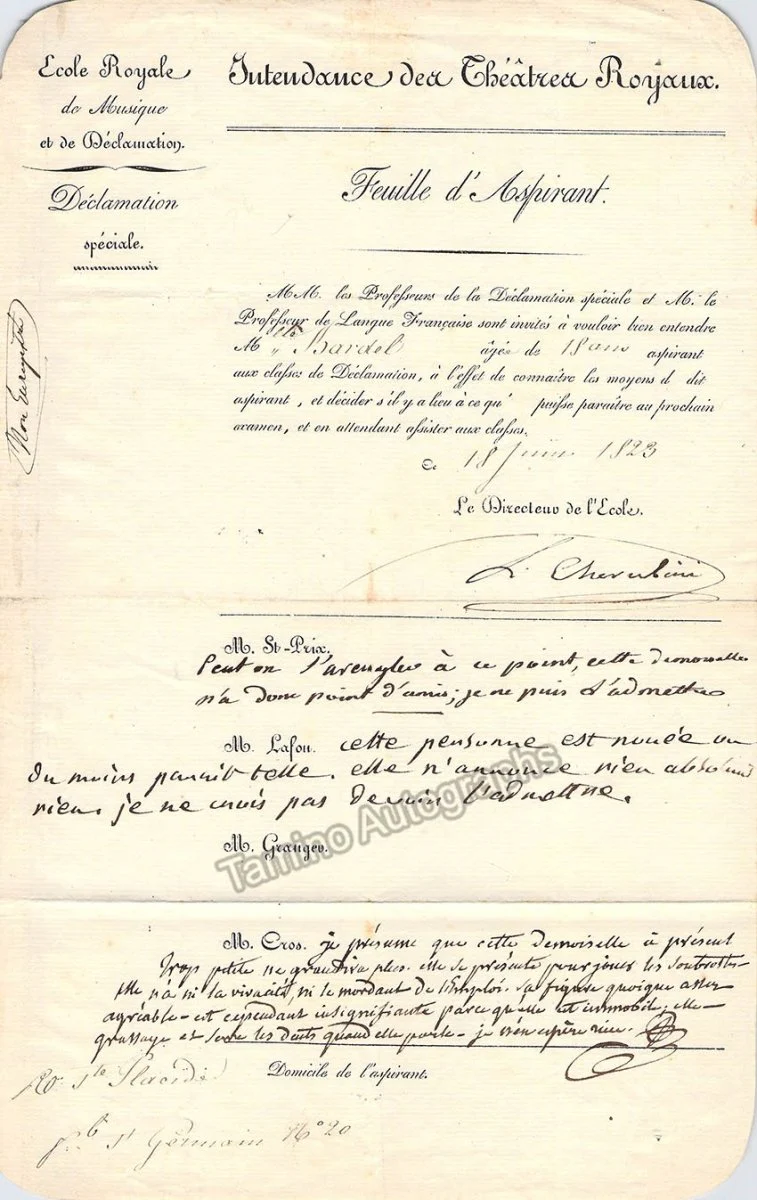 Ecole Royale
de Musique
et de Déclamation.
Déclamation
spéciale.
Intendance des Théâtres Royaux.
Feuille d'Aspirant.
MM. les Professeurs de la Déclamation spéciale et M. le
Professeur de Langue Française sont invités à vouloir bien entendre
M lle Bardel âgée de 18 ans aspirant
aux classes de Déclamation, à l'effet de connaître les moyens d dit
aspirant, et décider s'il y a lieu à ce qu' puisse paraître au prochain
examen, et en attendant assister aux classes.
Ce 18 Juin 1823
Le Directeur de l'Ecole.
L. Cherubini
M. St-Prix.
Peut on s'aveugler à ce point, cette demoiselle
n'a donc point d'amis; je ne puis l'admettre
M. Lafon. cette personne est nouée ou
du moins parait telle. elle n'annonce rien absolument
rien. je ne crois pas devoir l'admettre.
M. Granger.
M. Cros. je présume que cette demoiselle à présent
trop petite ne grandira plus. elle se présente pour jouer les soubrettes-
elle n'a ni la vivacité, ni le mordant de l'Emploi. sa figure quoique assez
agréable - est cependant insignifiante parce qu'elle est immobile; elle
grassaye et serre les dents quand elle parle - je n'en espère rien.
Domicile de l'aspirant.
Ste Placide
fb St Germain No 20
Non Enregistré
Tamino Autographs